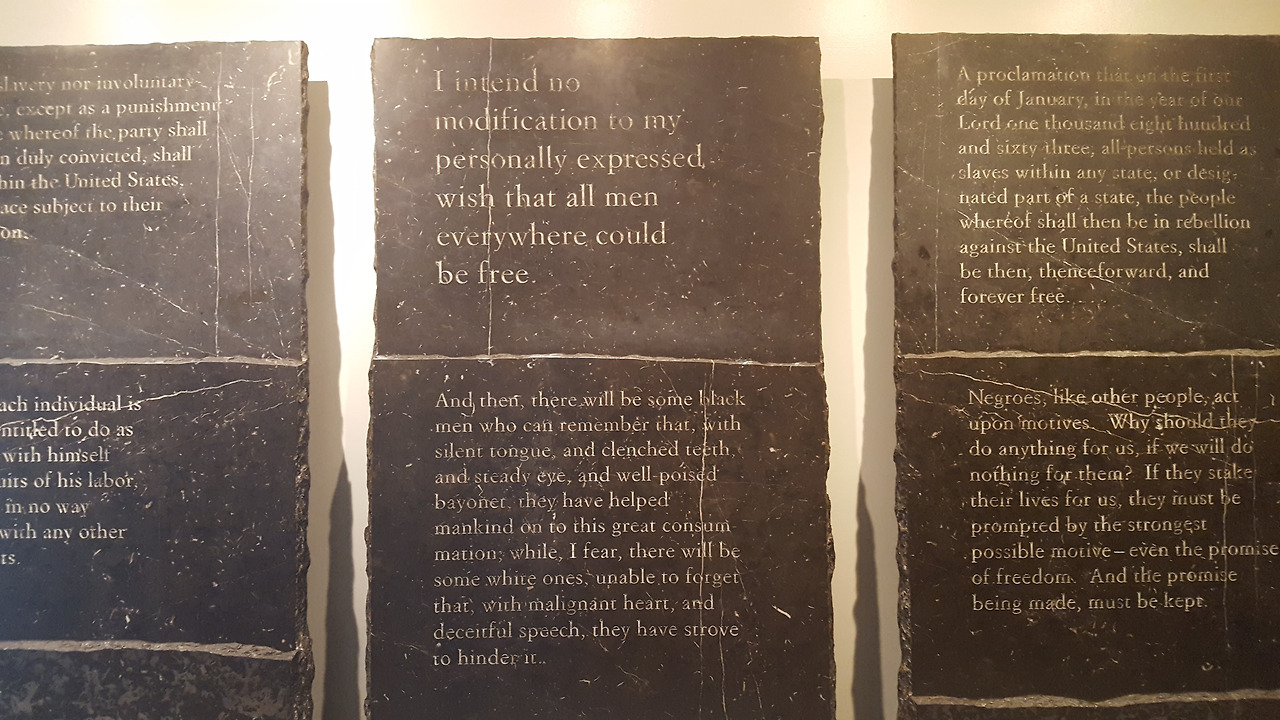 slavery nor involuntary
except as a punishment
whereof the party shall
duly convicted, shall
the United States,
subject to their
individual is
to do as
with himself
of his labor,
in no way
with any other
I intend no
modification to my
personally expressed,
wish that all men
everywhere could
be free.
And then, there will be some black
men who can remember that, with
silent tongue, and clenched teeth,
and steady eye, and well-poised
bayonet, they have helped
mankind on to this great consum-
mation; while, I fear, there will be
some white ones, unable to forget
that, with malignant heart, and
deceitful speech, they have strove
to hinder it..
A proclamation that on the first
day of January, in the year of our
Lord one thousand eight hundred
and sixty three, all persons held as
slaves within any state, or desig-
nated part of a state, the people
whereof shall then be in rebellion
against the United States, shall
be then, thenceforward, and
forever free. . . .
Negroes, like other people, act
upon motives. Why should they
do anything for us, if we will do
nothing for them? If they stake
their lives for us, they must be
prompted by the strongest
possible motive – even the promise
of freedom. And the promise
being made, must be kept.